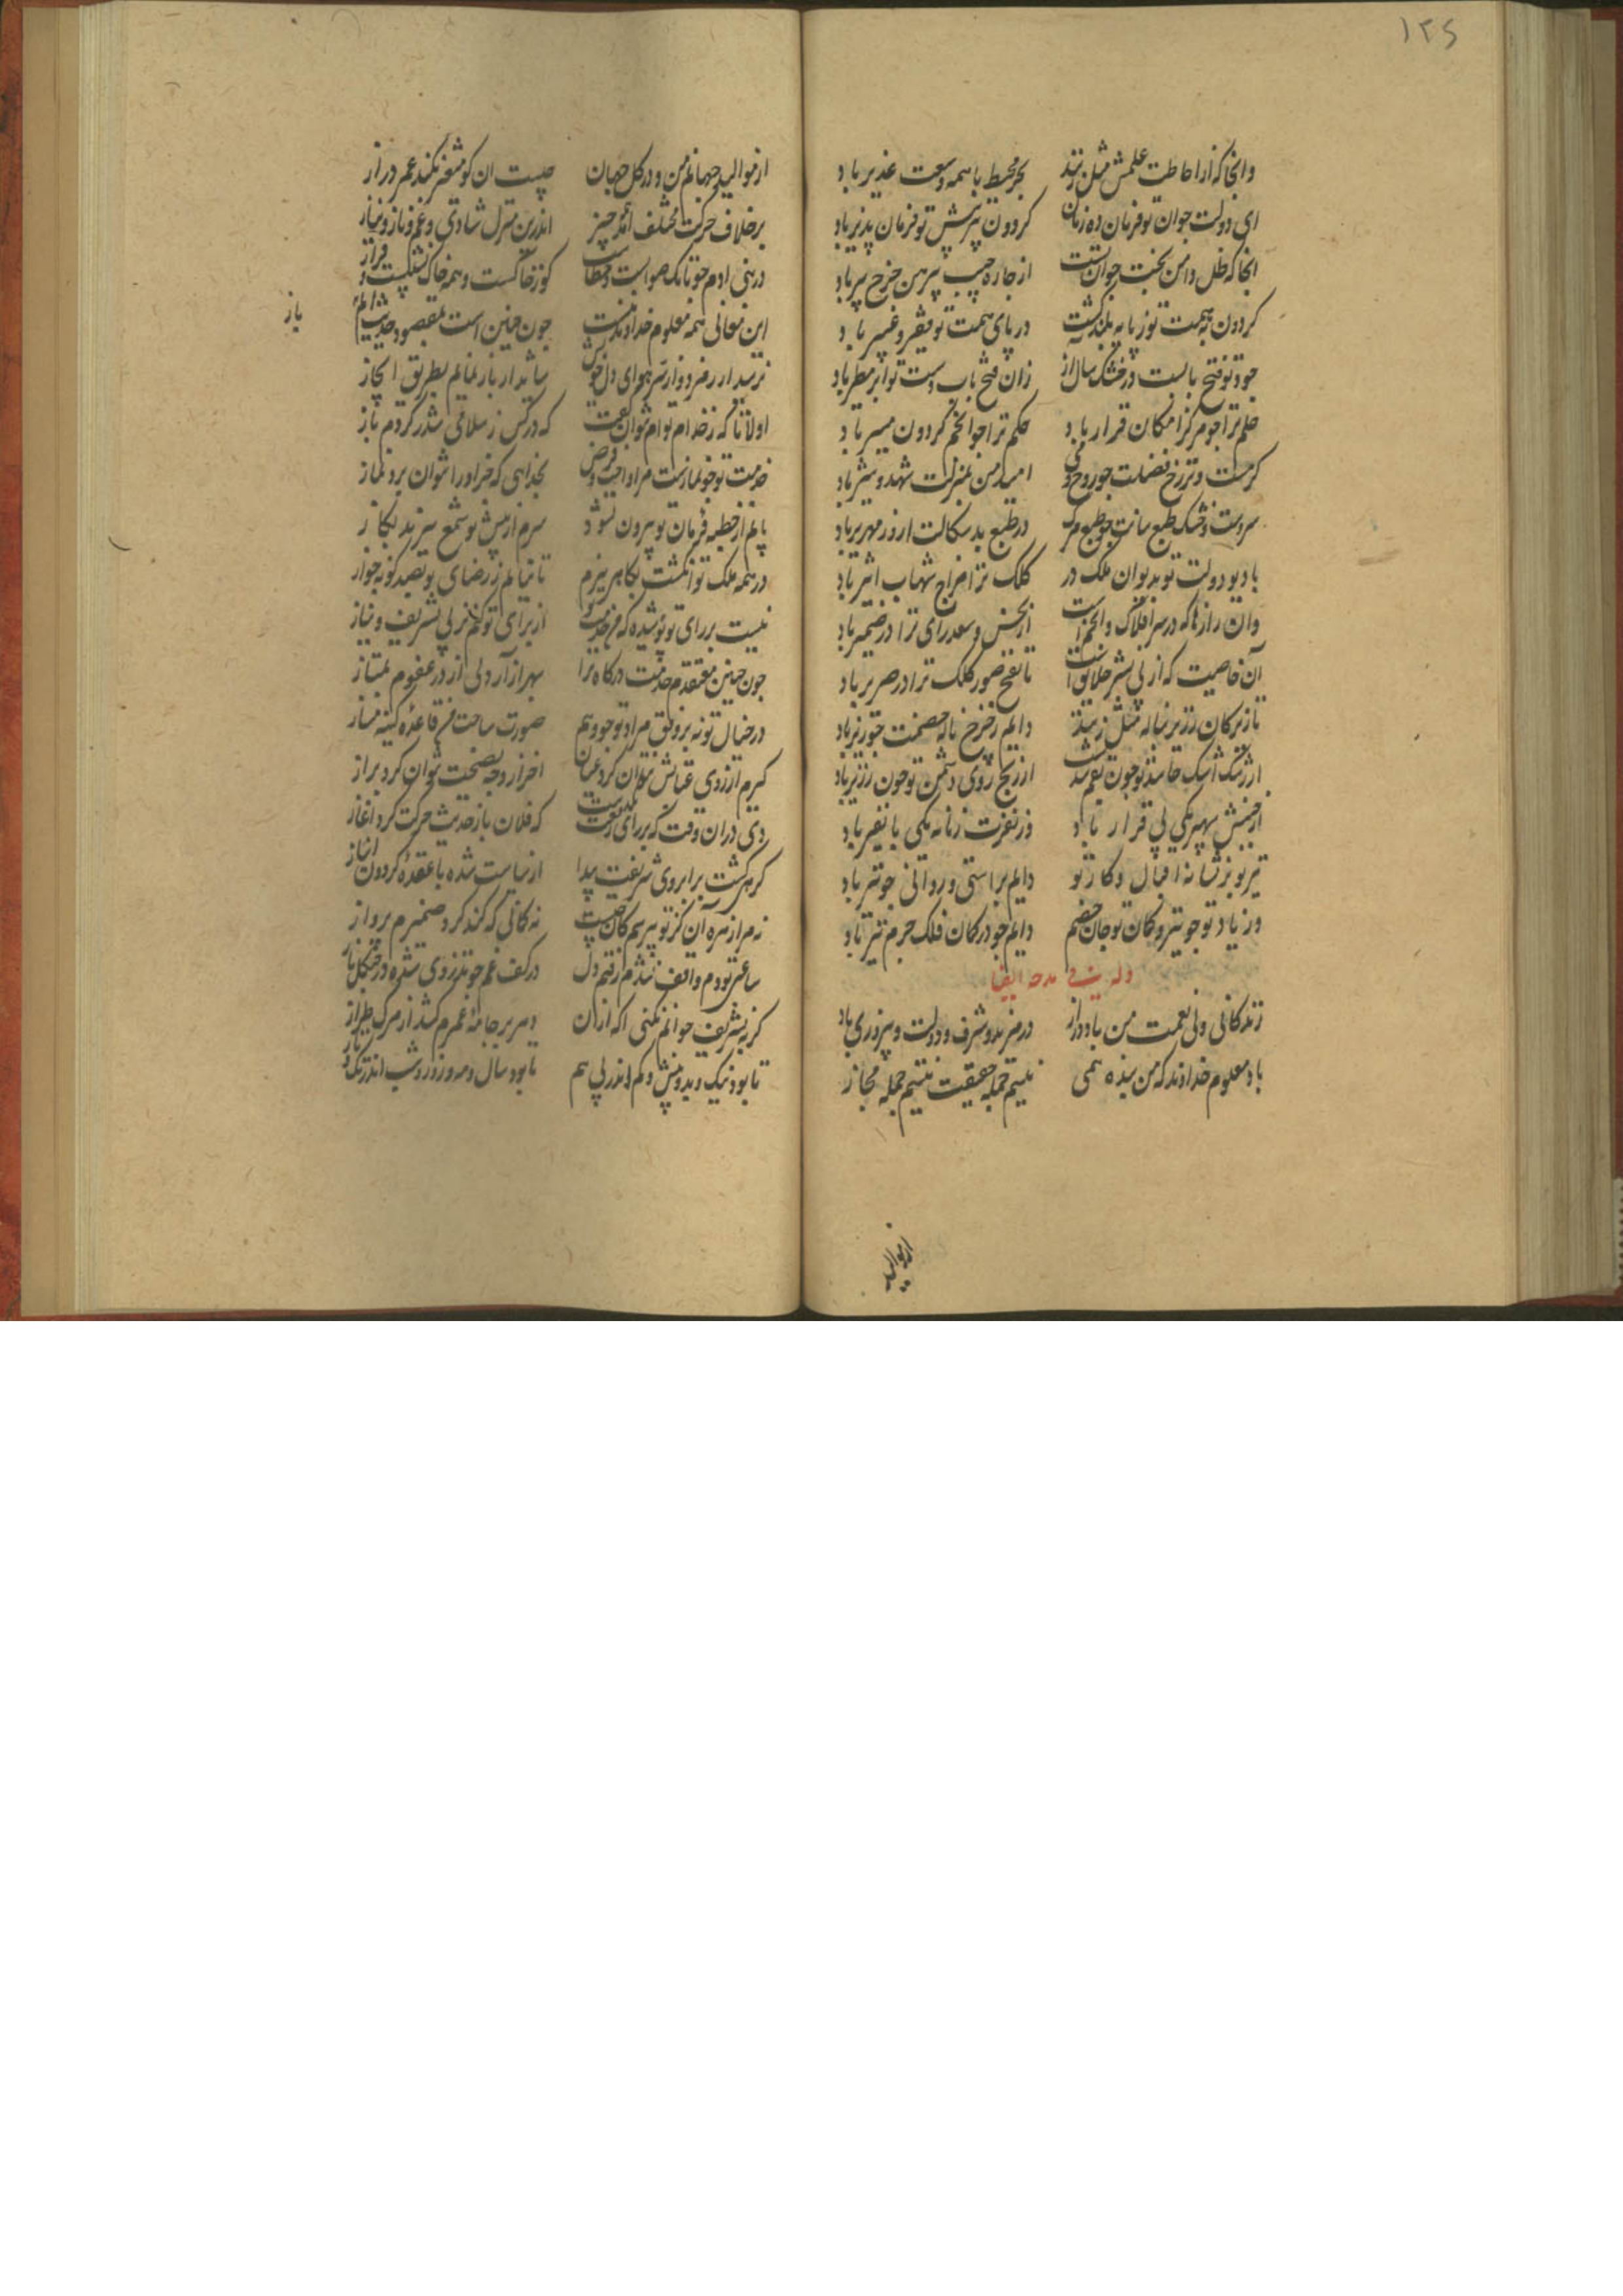 ۱۲۵
وانجا که از احاطت علمش مثل زنند بحر محیط با همه وسعت غدیر باد
ای دولت جوان تو فرمان ده زمان کردون پیرش تو فرمان پذیر باد
انجا که ظل دامن بخت جوان تست از جاره جیب پیرهن جرخ پیر باد
کردون بهمت تو ز پایه بلند کشت در پای همت تو فقیر و باد
جود تو فتح بابست در خشک سال از زان فتح باب دست تو ابر مطیر باد
حلم ترا جو مرکز امکان قرار باد حکم ترا جو انجم کردون مسیر باد
کرمست و تر فضلت جو روح می امید من بمنزلت شهد و شیر باد
سردست و خشک طبع جو طبع مرک در طبع بدسکالت از زمهریر باد
با دیو دولت تو بدیوان ملک در کلک ترا مزاج شهاب اثیر باد
وان رازها که در سر افلاک و انجم است از نحس و سعد رای ترا در ضمیر باد
آن خاصیت که از پی نشر خلایق است تا نفخ صور کلک ترا در صریر باد
تا زیر کان زیر بناله مثل زنند دایم ز جرخ ناله خصمت جو زیر باد
از رشک اشک حاسد تو جون بقم شد از رنج روی دشمن تو جون زریر باد
از جنبش سپهر یکی بی قرار باد وز نفرت زمانه یکی با نفیر باد
تیر تو بر نشانه اقبال و کار تو دایم براستی و روانی جو تیر باد
وز یاد تو جو تیر و کمان تو جان خصم دایم جو در کمان فلک جرم تیر باد
وله فی مدحه ایضا
زندکانی ولی نعمت من باد دراز در مزید و شرف و دولت و پیروزی باد
باد معلوم خداوند که من بنده همی نیستم جمله حقیقت نیستم جمله مجاز
از موالید
از موالید جهانم من و در کل جهان چیست ان کو متغیر نکند عمر دراز
بر خلاف حرکت مختلف اند همه جیز اندرین منزل شادی و غم و ناز و نیاز
در بنی ادم جونانک صوابست و خطاست کوز خاکست و همه خاک نشیبست و فراز
این معانی همه معلوم خداوند منست جون جنین است بمقصود حدیث ایم باز
باز
شاید ار باز نمایم بطریق ایجاز
اولا تا که ز خدام توام نتوان کفت که در کس ز سلامی شد در کردم باز
خدمت تو جو نمازست مرا واجب و فرض بخدایی که جز او را نتوان برد نماز
پایم از خطه فرمان تو بیرون نشود سرم از پیش تو شمع بکاز
در همه ملک تو انکشت بکاهی نبرم تا نیابم ز رضای تو بصد کونه جواز
نیست بر رای تو پوشیده که من خدمت تو از برای تو کنم نز پی تشریف و نیاز
جون جنین معتقدم خدمت درکاه ترا بهر ازار دلی از در عفوم بمتاز
در خیال تو نه بر وفق مراد تو جو وهم صورت ساخت قاعده کینه مساز
کیرم از روی عتابش نتوان کرد عیان اخر از وجه نصیحت توان کرد براز
دی دران وقت که بر رای رفیعت که فلان باز حدیث حرکت کرد اغاز
کرهی کشت بر ابروی شریفت پیدا از سیاست شده با عقده کردون انباز
نه مرا زهره آن کز تو بپرسم کان چیست نه کمانی که کند کرد ضمیرم پرواز
ساعتی بودم و واقف نشدم رفتم و دل در کف غم جو تذروی شده در جنکل باز
کر بتشریف جوابم نکنی اکه ازان دهر بر جامه عمرم کشد از مرک طراز
تا بود نیک و بد و بیش و کم اندر پی هم تا بود سال و مه و روز و شب اندر تک و تاز